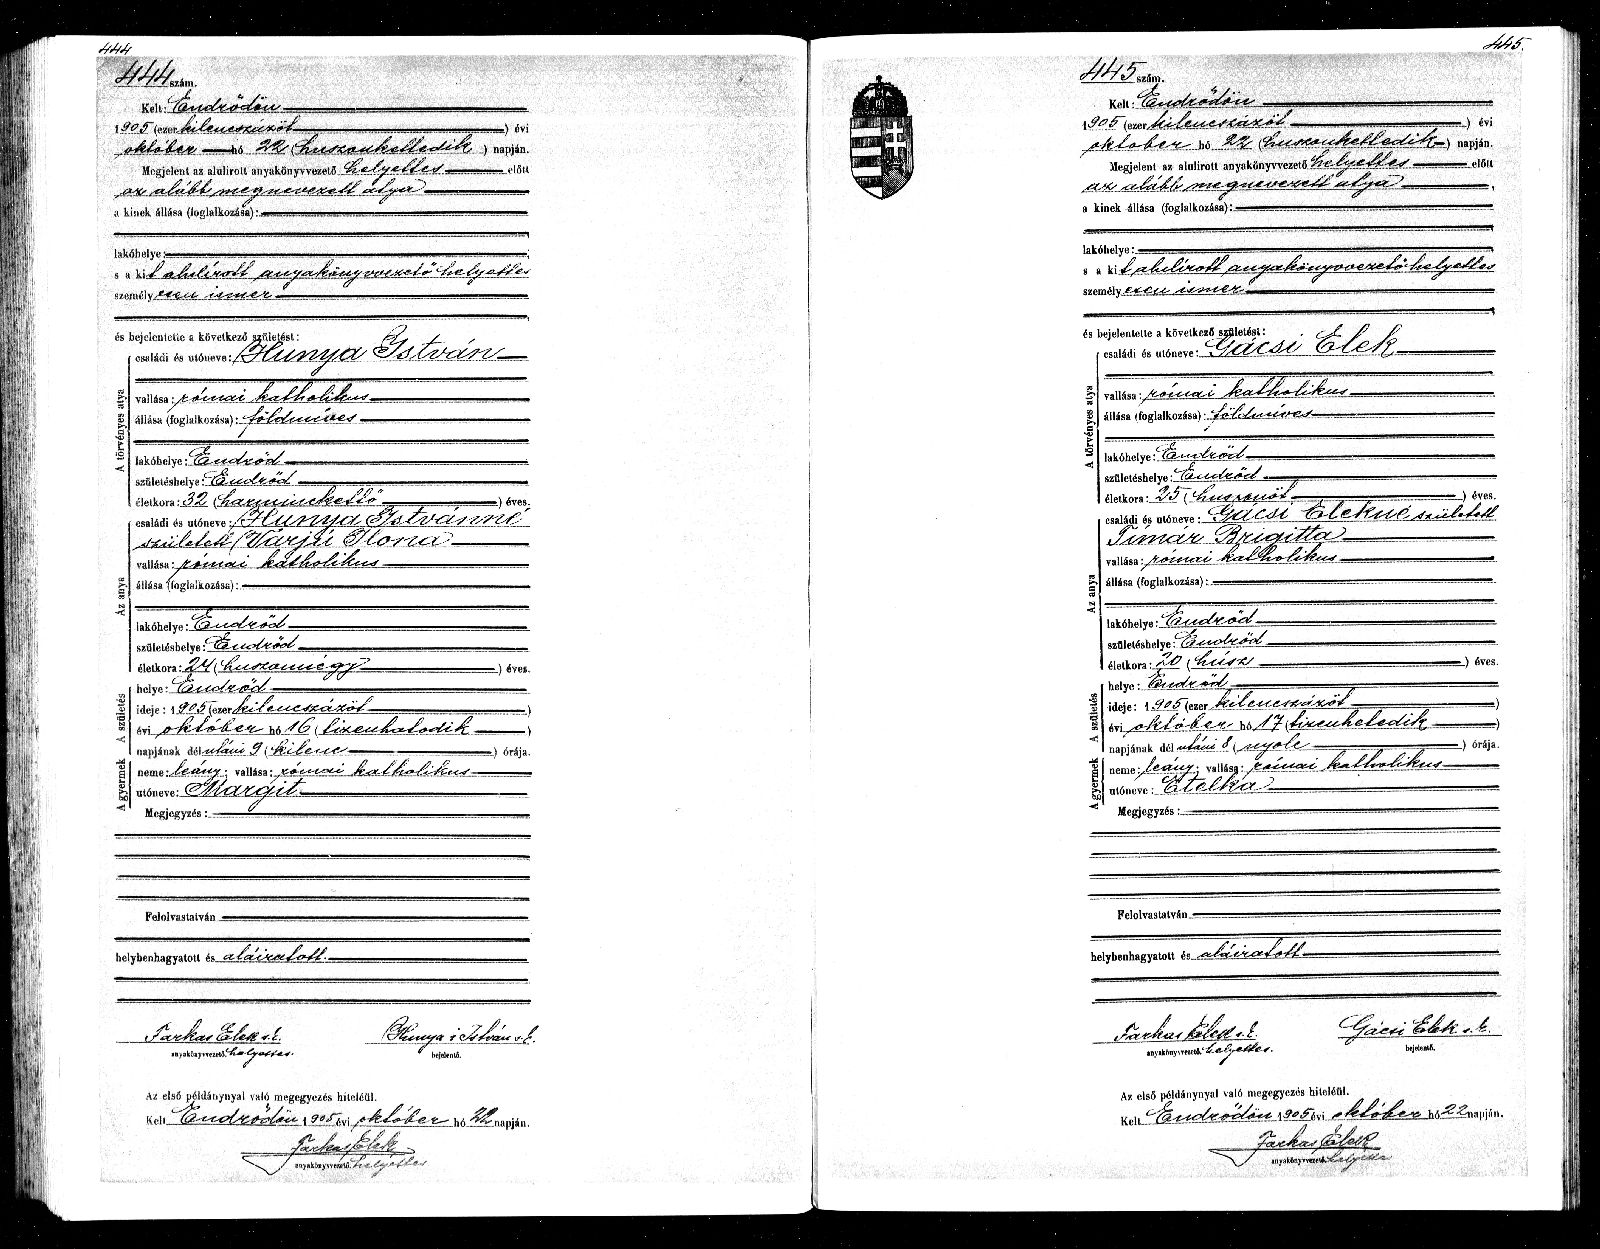 444
444 szám.
Kelt: Endrődön
1905 (ezerkilenczszázöt) évi
október hó 22 (huszonkettedik) napján.
Megjelent az alulirott anyakönyvvezető helyettes előtt
az alább megnevezett atya
a kinek állása (foglalkozása):
lakóhelye:
s a kit alulírott anyakönyvvezető helyettes
személyesen ismer
és bejelentette a következő születést:
A törvényes atya
családi és utóneve: Hunya István
vallása: római katholikus
állása (foglalkozása): földmíves
lakóhelye: Endrőd
születéshelye: Endrőd
életkora: 32 (harminckettő) éves.
Az anya
családi és utóneve: Hunya Istvánné
született Várjú Ilona
vallása: római katholikus
állása (foglalkozása):
lakóhelye: Endrőd
születéshelye: Endrőd
életkora: 24 (huszonnégy) éves.
A születés
helye: Endrőd
ideje: 1905 (ezerkilenczszázöt)
évi október hó 16 (tizenhatodik)
napjának dél utáni 9 (kilenc) órája.
A gyermek
neme: leány; vallása: római katholikus
utóneve: Margit
Megjegyzés:
Felolvastatván
helybenhagyatott és aláiratott.
Farkas Elek s.k. Hunya i István s.k.
anyakönyvvezető helyettes. bejelentő.
Az első példánynyal való megegyezés hiteléül.
Kelt Endrődön 1905 évi október hó 22 napján.
Farkas Elek
anyakönyvvezető helyettes
445.
445 szám.
Kelt: Endrődön
1905 (ezerkilenczszázöt) évi
október hó 22 (huszonkettedik) napján.
Megjelent az alulirott anyakönyvvezető helyettes előtt
az alább megnevezett atya,
a kinek állása (foglalkozása):
lakóhelye:
s a kit alulírott anyakönyvvezető helyettes
személyesen ismer
és bejelentette a következő születést:
A törvényes atya
családi és utóneve: Gácsi Elek
vallása: római katholikus
állása (foglalkozása): földmíves
lakóhelye: Endrőd
születéshelye: Endrőd
életkora: 25 (huszonöt) éves.
Az anya
családi és utóneve: Gácsi Elekné született
Tímár Brigitta
vallása: római katholikus
állása (foglalkozása):
lakóhelye: Endrőd
születéshelye: Endrőd
életkora: 20 (húsz) éves.
A születés
helye: Endrőd
ideje: 1905 (ezerkilenczszázöt)
évi október hó 17 (tizenhetedik)
napjának dél utáni 8 (nyolc) órája.
A gyermek
neme: leány; vallása: római katholikus
utóneve: Etelka
Megjegyzés:
Felolvastatván
helybenhagyatott és aláiratott
Farkas Elek s.k. Gácsi Elek s.k.
anyakönyvvezető helyettes. bejelentő.
Az első példánynyal való megegyezés hiteléül.
Kelt Endrődön 1905 évi október hó 22 napján.
Farkas Elek
anyakönyvvezető helyettes